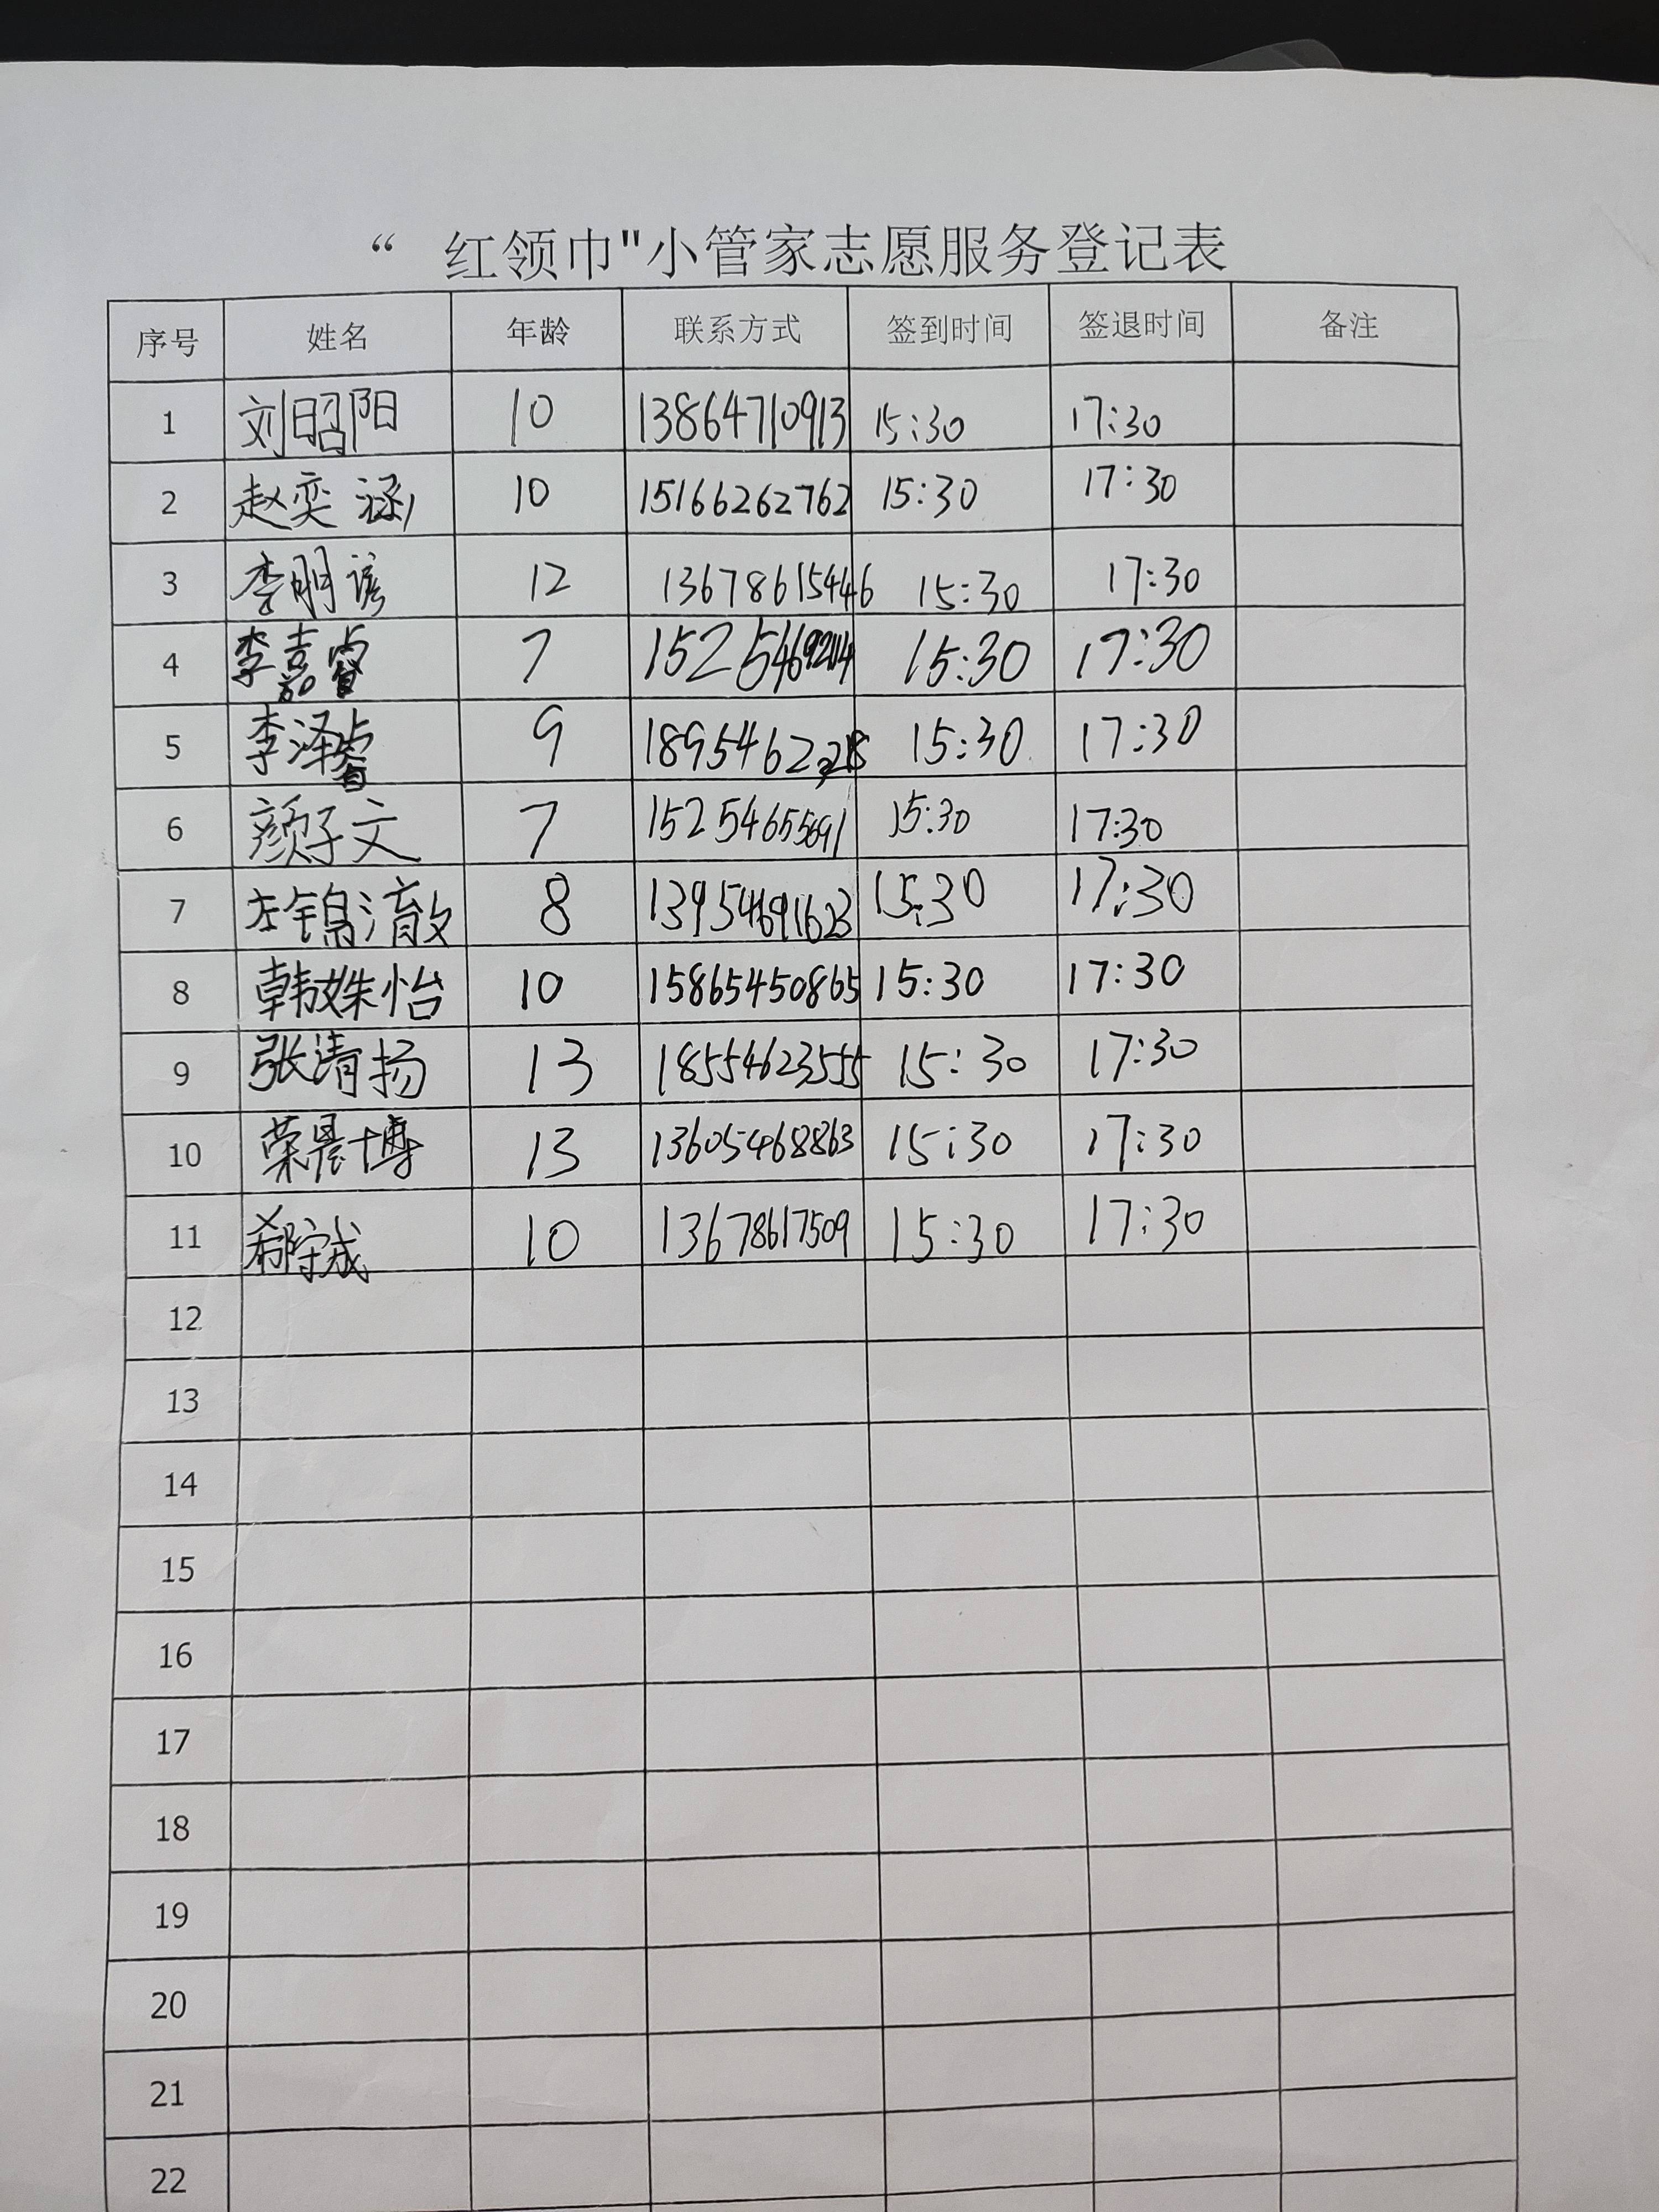 “ 红领巾"小管家志愿服务登记表
序号 姓名 年龄 联系方式 签到时间 签退时间 备注
1 刘昭阳 10 13864710913 15:30 17:30
2 赵奕涵 10 15166262762 15:30 17:30
3 李明谚 12 13678615446 15:30 17:30
4 李嘉睿 7 15:30 17:30
5 李泽睿 9 15:30 17:30
6 颜子文 7 15254655691 15:30 17:30
7 左锦潵 8 13954691623 15:30 17:30
8 韩姝怡 10 15865450865 15:30 17:30
9 张清扬 13 18554623555 15:30 17:30
10 荣晨博 13 13605468863 15:30 17:30
11 郗守成 10 13678617509 15:30 17:30
12
13
14
15
16
17
18
19
20
21
22